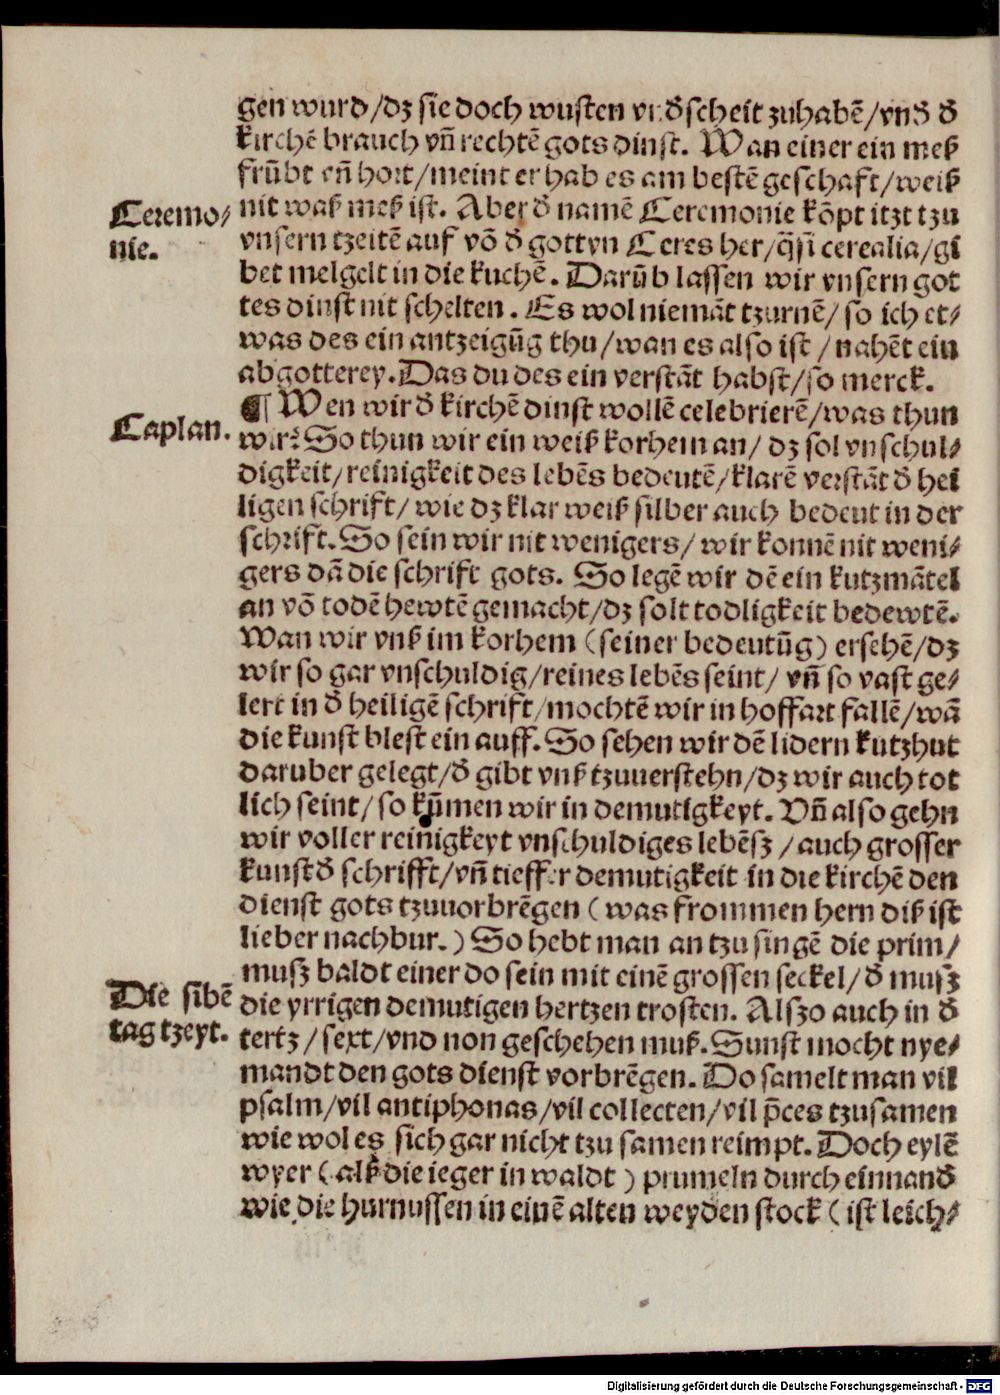 gen wurd/dz sie doch wusten vnd̕scheit zuhabē/vnd d̕
kirchē brauch vñ rechtē gots dinst. Wan einer ein meß
frūbt eñ hort/meint er hab es am bestē geschaft/weiß
Ceremo⸗
nie.
nit waß meß ist. Aber d̕ namē Ceremonie kōpt itzt tzu
vnsern tzeitē auf vō d̕ gottyn Ceres her/q̄si cerealia/gi
bet melgelt in die kuchē. Darūb lassen wir vnsern got
tes dinst nit schelten. Es wol niemāt tzurnē/ so ich et⸗
was des ein antzeigūg thu/wan es also ist / nahēt ein
abgotterey. Das du des ein verstāt habst/so merck.
¶ Wen wir d̕ kirchē dinst wollē celebrierē/was thun
Caplan.
wir? So thun wir ein weiß korhem an/ dz sol vnschul⸗
digkeit/reinigkeit des lebēs bedeutē/klarē verstāt d̕ hei
ligen schrift/ wie dz klar weiß silber auch bedeut in der
schrift. So sein wir nit wenigers/ wir konnē nit weni⸗
gers dā die schrift gots. So legē wir dē ein kutzmātel
an vō todē hewtē gemacht/dz solt todligkeit bedewtē.
Wan wir vnß im korhem (seiner bedeutūg) ersehē/dz
wir so gar vnschuldig/reines lebēs seint/ vñ so vast ge⸗
lert in d̕ heiligē schrift/mochtē wir in hoffart fallē/wā
die kunst blest ein auff. So sehen wir dē lidern kutzhut
daruber gelegt/d̕ gibt vnß tzuuerstehn/dz wir auch tot
lich seint/so kūmen wir in demutigkeyt. Vñ also gehn
wir voller reinigkeyt vnschuldiges lebēsz /auch grosser
kunst d̕ schrifft/vñ tieffer demutigkeit in die kirchē den
dienst gots tzuuorbrēgen (was frommen hern diß ist
lieber nachbur.) So hebt man an tzu singē die prim/
musz baldt einer do sein mit einē grossen seckel/d̕ musz
Die sibē
tag tzeyt.
die yrrigen demutigen hertzen trosten. Alszo auch in d̕
tertz/sext/vnd non geschehen muß. Sunst mocht nye⸗
mandt den gots dienst vorbrēgen. Do samelt man vil
psalm/vil antiphonas/vil collecten/vil p̄ces tzusamen
wie wol es sich gar nicht tzu samen reimpt. Doch eylē
wyer (alß die ieger in waldt) prumeln durch einnand̕
wie die hurnussen in einē alten weyden stock (ist leich⸗
Digitalisierung gefördert durch die Deutsche Forschungsgemeinschaft - DFG